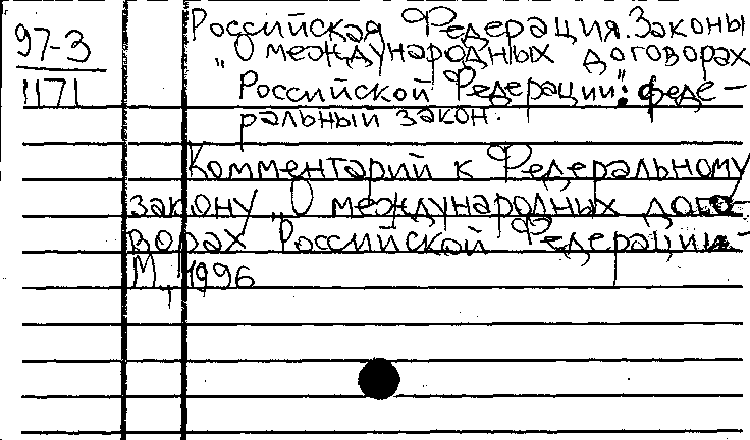 97-3
1171
Российская Федерация. Законы
„О международных договорах
Российской Федерации": феде-
ральный закон.
Комментарий к Федеральному
закону „О международных дого-
ворах Российской Федерации"
М., 1996